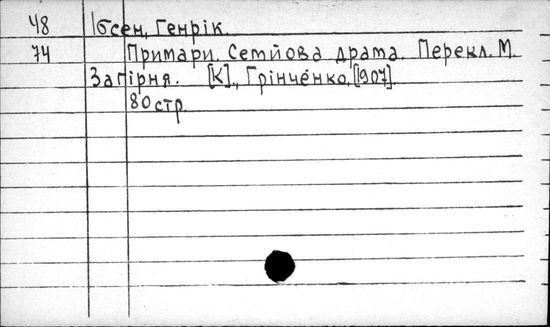 48 Ібсен, Генрік.
74 Примари. Семйова драма. Перекл. М.
Загірня. [К]., Грінченко, [1907].
80 стр.